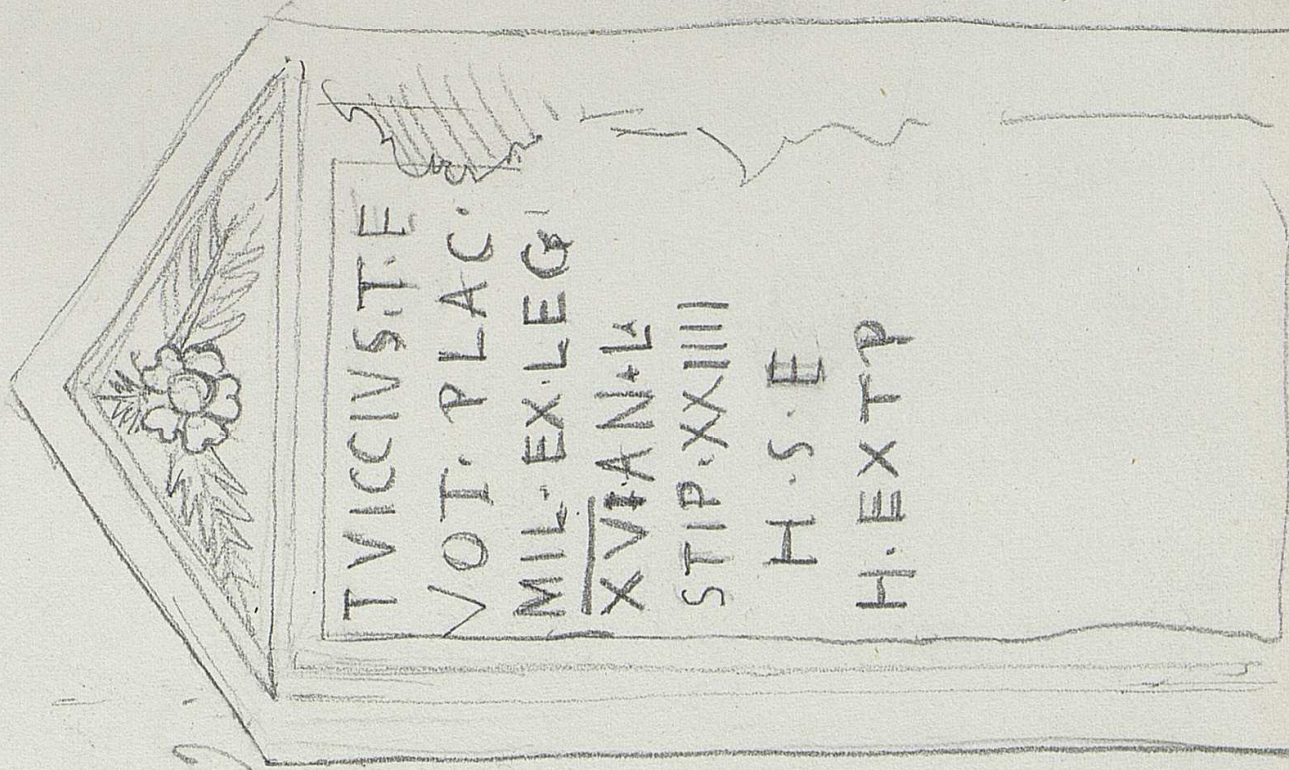 TVICCIVS·T·F
VOT·PLAC·
MIL·EX·LEG
XVI·AN·L
STIP·XXIIII
H·S·E
H·EXTP